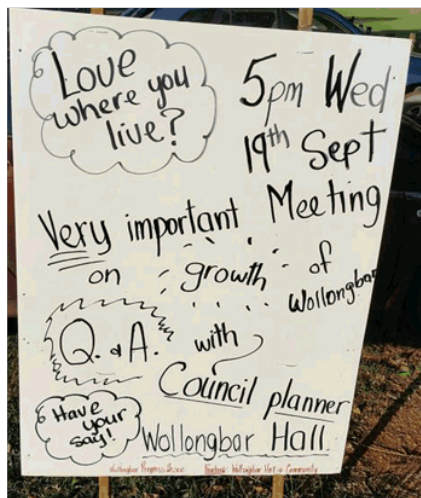 Love
where you
live?
5pm Wed
19th Sept
Very important Meeting
on growth of
Wollongbar
Q. & A. with
Council planner
Have
your
say!
Wollongbar Hall
Wollongbar Progress
Facebook: Wollongbar Community